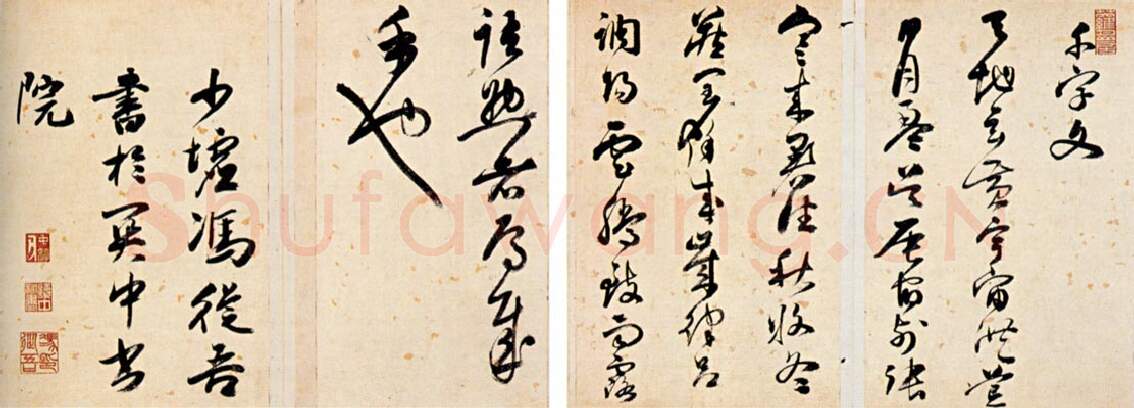 千字文
天地玄黃宇宙洪荒
日月盈昃辰宿列張
寒来暑往秋收冬
藏閏餘成歲律呂
調陽雲騰致雨露
語助者焉哉
乎也
少墟馮從吾
書於關中書
院
Shufawang.CN